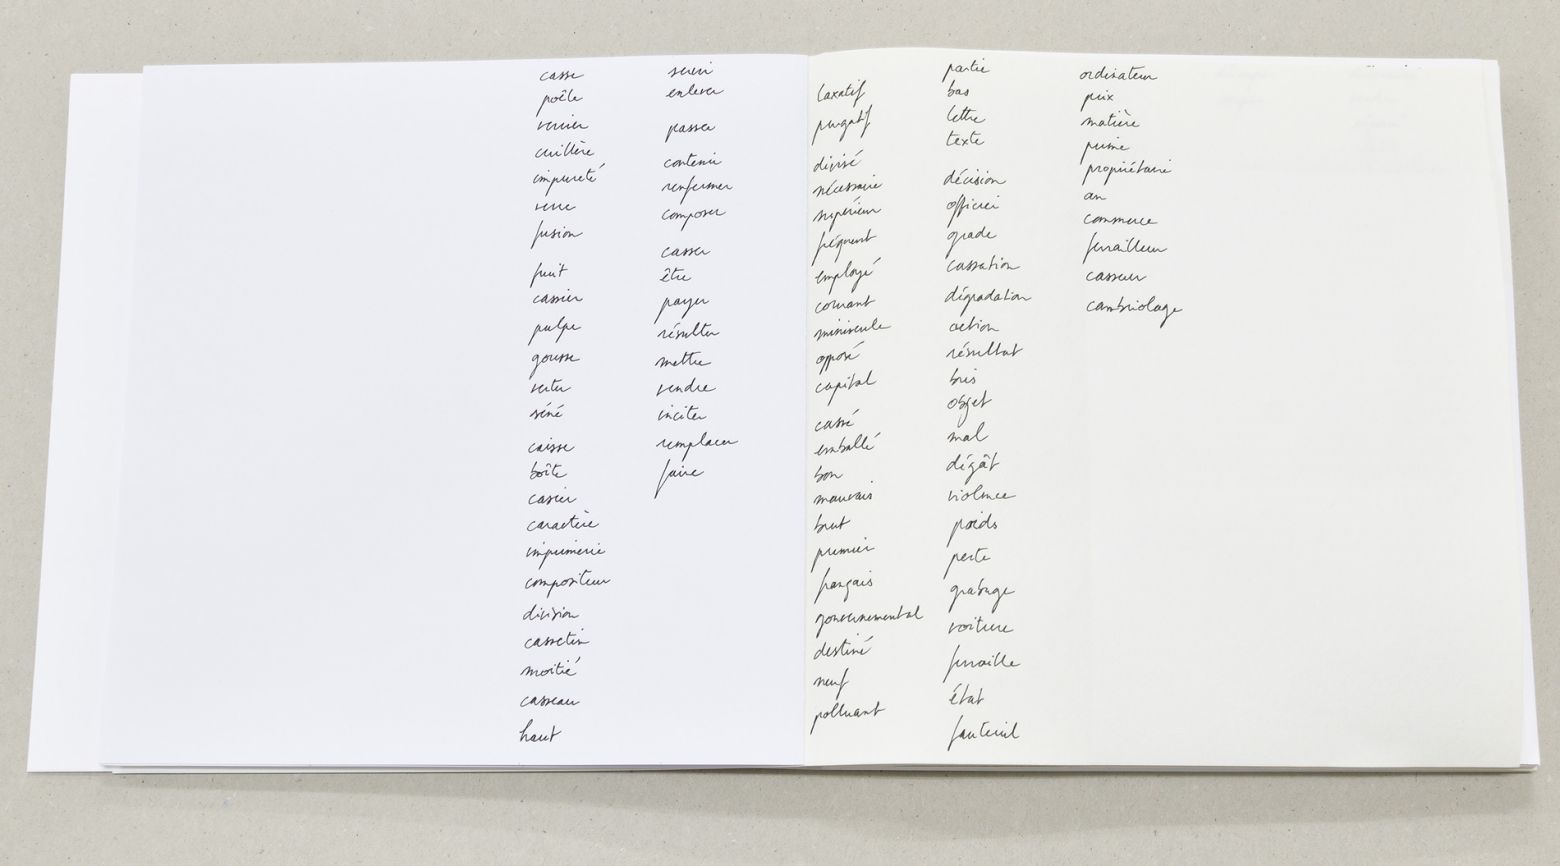 casse
poêle
verrier
cuillère
impureté
verre
fusion
fruit
cassier
pulpe
gousse
vertu
séné
caisse
boîte
casier
caractère
imprimerie
compositeur
division
cassetin
moitié
casseau
haut
servir
enlever
passer
contenir
renfermer
composer
casser
être
payer
résulter
mettre
vendre
inciter
remplacer
faire
laxatif
purgatif
divisé
nécessaire
supérieur
fréquent
employé
courant
miniscule
opposé
capital
cassé
emballé
bon
mauvais
brut
premier
français
gouvernemental
destiné
neuf
polluant
partie
bas
lettre
texte
décision
officier
grade
cassation
dégradation
action
résultat
bris
objet
mal
dégât
violence
poids
perte
grabuge
voiture
ferraille
état
fauteuil
ordinateur
prix
matière
prime
propriétaire
an
commerce
ferrailleur
casseur
cambriolage